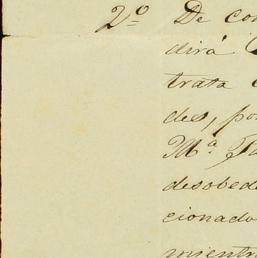 2º De con
dirá
trata
des, po
Mª
desobed
cionado
mientr